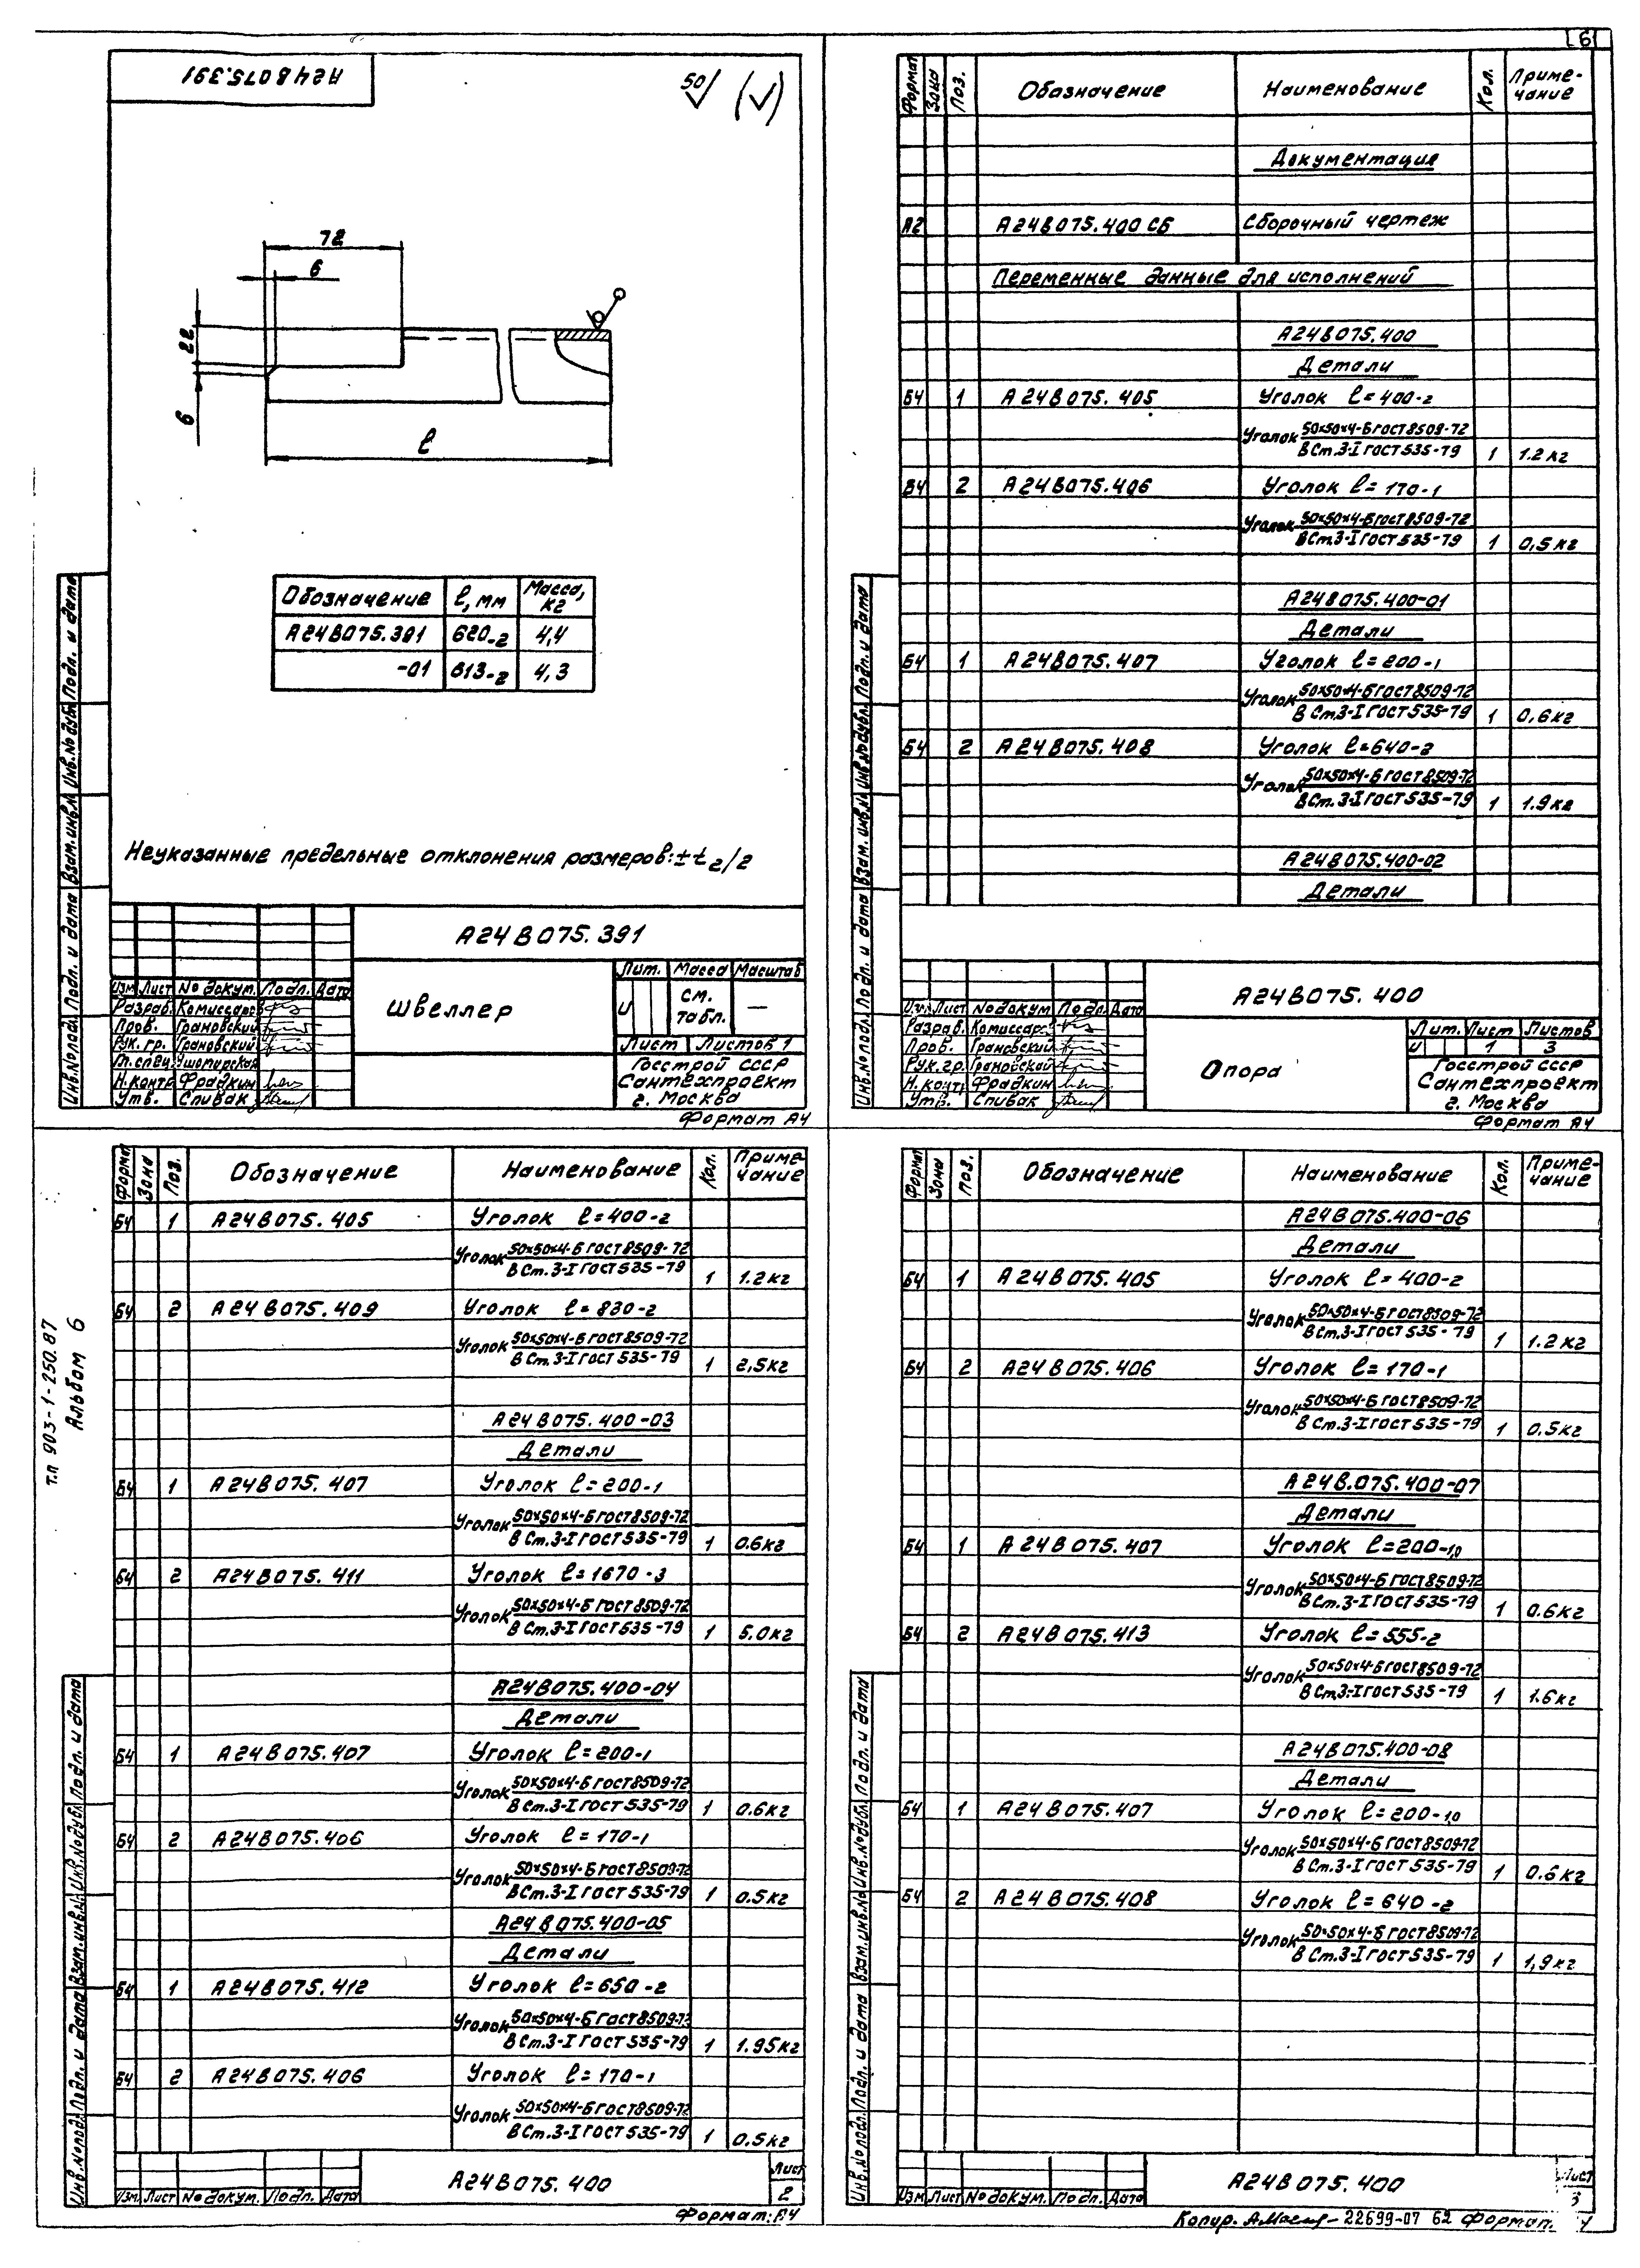 6
А24В075.391
50
(√)
72
6
22
6
ℓ
Обозначение ℓ, мм Масса, кг
А24В075.391 620-2 4,4
-01 613-2 4,3
Неуказанные предельные отклонения размеров: ± t2/2
А24В075.391
Изм Лист № докум. Подп. Дата
Разраб. Комиссаров
Пров. Грановский
Рук. гр. Грановский
Гл. спец.
Н. контр Фрадкин
Утв. Спивак
Швеллер
Лит. Масса Масштаб
И см. табл. —
Лист Листов 1
Госстрой СССР
Сантехпроект
г. Москва
Формат А4
Инв.№ подл. Подп. и дата Взам. инв.№ Инв.№ дубл. Подп. и дата
Формат Зона Поз. Обозначение Наименование Кол. Примечание
Документация
А2 А24В075.400 СБ Сборочный чертеж
Переменные данные для исполнений
А24В075.400
Детали
Б4 1 А24В075.405 Уголок ℓ=400-2
Уголок 50×50×4-Б ГОСТ 8509-72
В Ст.3-I ГОСТ 535-79 1 1.2 кг
Б4 2 А24В075.406 Уголок ℓ=170-1
Уголок 50×50×4-Б ГОСТ 8509-72
В Ст.3-I ГОСТ 535-79 1 0,5 кг
А24В075.400-01
Детали
Б4 1 А24В075.407 Уголок ℓ=200-1
Уголок 50×50×4-Б ГОСТ 8509-72
В Ст.3-I ГОСТ 535-79 1 0,6 кг
Б4 2 А24В075.408 Уголок ℓ=640-2
Уголок 50×50×4-Б ГОСТ 8509-72
В Ст.3-I ГОСТ 535-79 1 1.9 кг
А24В075.400-02
Детали
А24В075.400
Изм. Лист № докум Подп. Дата
Разраб. Комиссаров
Пров. Грановский
Рук. гр. Грановский
Н. контр Фрадкин
Утв. Спивак
Опора
Лит. Лист Листов
И 1 3
Госстрой СССР
Сантехпроект
г. Москва
Формат А4
Инв.№ подл. Подп. и дата Взам. инв.№ Инв.№ дубл. Подп. и дата
т.п 903-1-250.87
Альбом 6
Формат Зона Поз. Обозначение Наименование Кол. Примечание
Б4 1 А24В075.405 Уголок ℓ=400-2
Уголок 50×50×4-Б ГОСТ 8509-72
В Ст.3-I ГОСТ 535-79 1 1.2 кг
Б4 2 А24В075.409 Уголок ℓ=830-2
Уголок 50×50×4-Б ГОСТ 8509-72
В Ст.3-I ГОСТ 535-79 1 2,5 кг
А24В075.400-03
Детали
Б4 1 А24В075.407 Уголок ℓ=200-1
Уголок 50×50×4-Б ГОСТ 8509-72
В Ст.3-I ГОСТ 535-79 1 0.6 кг
Б4 2 А24В075.411 Уголок ℓ=1670-3
Уголок 50×50×4-Б ГОСТ 8509-72
В Ст.3-I ГОСТ 535-79 1 5.0 кг
А24В075.400-04
Детали
Б4 1 А24В075.407 Уголок ℓ=200-1
Уголок 50×50×4-Б ГОСТ 8509-72
В Ст.3-I ГОСТ 535-79 1 0.6 кг
Б4 2 А24В075.406 Уголок ℓ=170-1
Уголок 50×50×4-Б ГОСТ 8509-72
В Ст.3-I ГОСТ 535-79 1 0.5 кг
А24В075.400-05
Детали
Б4 1 А24В075.412 Уголок ℓ=650-2
Уголок 50×50×4-Б ГОСТ 8509-72
В Ст.3-I ГОСТ 535-79 1 1.95 кг
Б4 2 А24В075.406 Уголок ℓ=170-1
Уголок 50×50×4-Б ГОСТ 8509-72
В Ст.3-I ГОСТ 535-79 1 0.5 кг
Изм. Лист № докум. Подп. Дата
А24В075.400
Лист
2
Формат: А4
Инв.№ подл. Подп. и дата Взам. инв.№ Инв.№ дубл. Подп. и дата
Формат Зона Поз. Обозначение Наименование Кол. Примечание
А24В075.400-06
Детали
Б4 1 А24В075.405 Уголок ℓ=400-2
Уголок 50×50×4-Б ГОСТ 8509-72
В Ст.3-I ГОСТ 535-79 1 1.2 кг
Б4 2 А24В075.406 Уголок ℓ=170-1
Уголок 50×50×4-Б ГОСТ 8509-72
В Ст.3-I ГОСТ 535-79 1 0.5 кг
А24В.075.400-07
Детали
Б4 1 А24В075.407 Уголок ℓ=200-1,0
Уголок 50×50×4-Б ГОСТ 8509-72
В Ст.3-I ГОСТ 535-79 1 0.6 кг
Б4 2 А24В075.413 Уголок ℓ=555-2
Уголок 50×50×4-Б ГОСТ 8509-72
В Ст.3-I ГОСТ 535-79 1 1.6 кг
А24В075.400-08
Детали
Б4 1 А24В075.407 Уголок ℓ=200-1,0
Уголок 50×50×4-Б ГОСТ 8509-72
В Ст.3-I ГОСТ 535-79 1 0.6 кг
Б4 2 А24В075.408 Уголок ℓ=640-2
Уголок 50×50×4-Б ГОСТ 8509-72
В Ст.3-I ГОСТ 535-79 1 1,9 кг
Изм Лист № докум. Подп. Дата
А24В075.400
Лист
3
Копир. 22699-07 62 Формат
Инв.№ подл. Подп. и дата Взам. инв.№ Инв.№ дубл. Подп. и дата